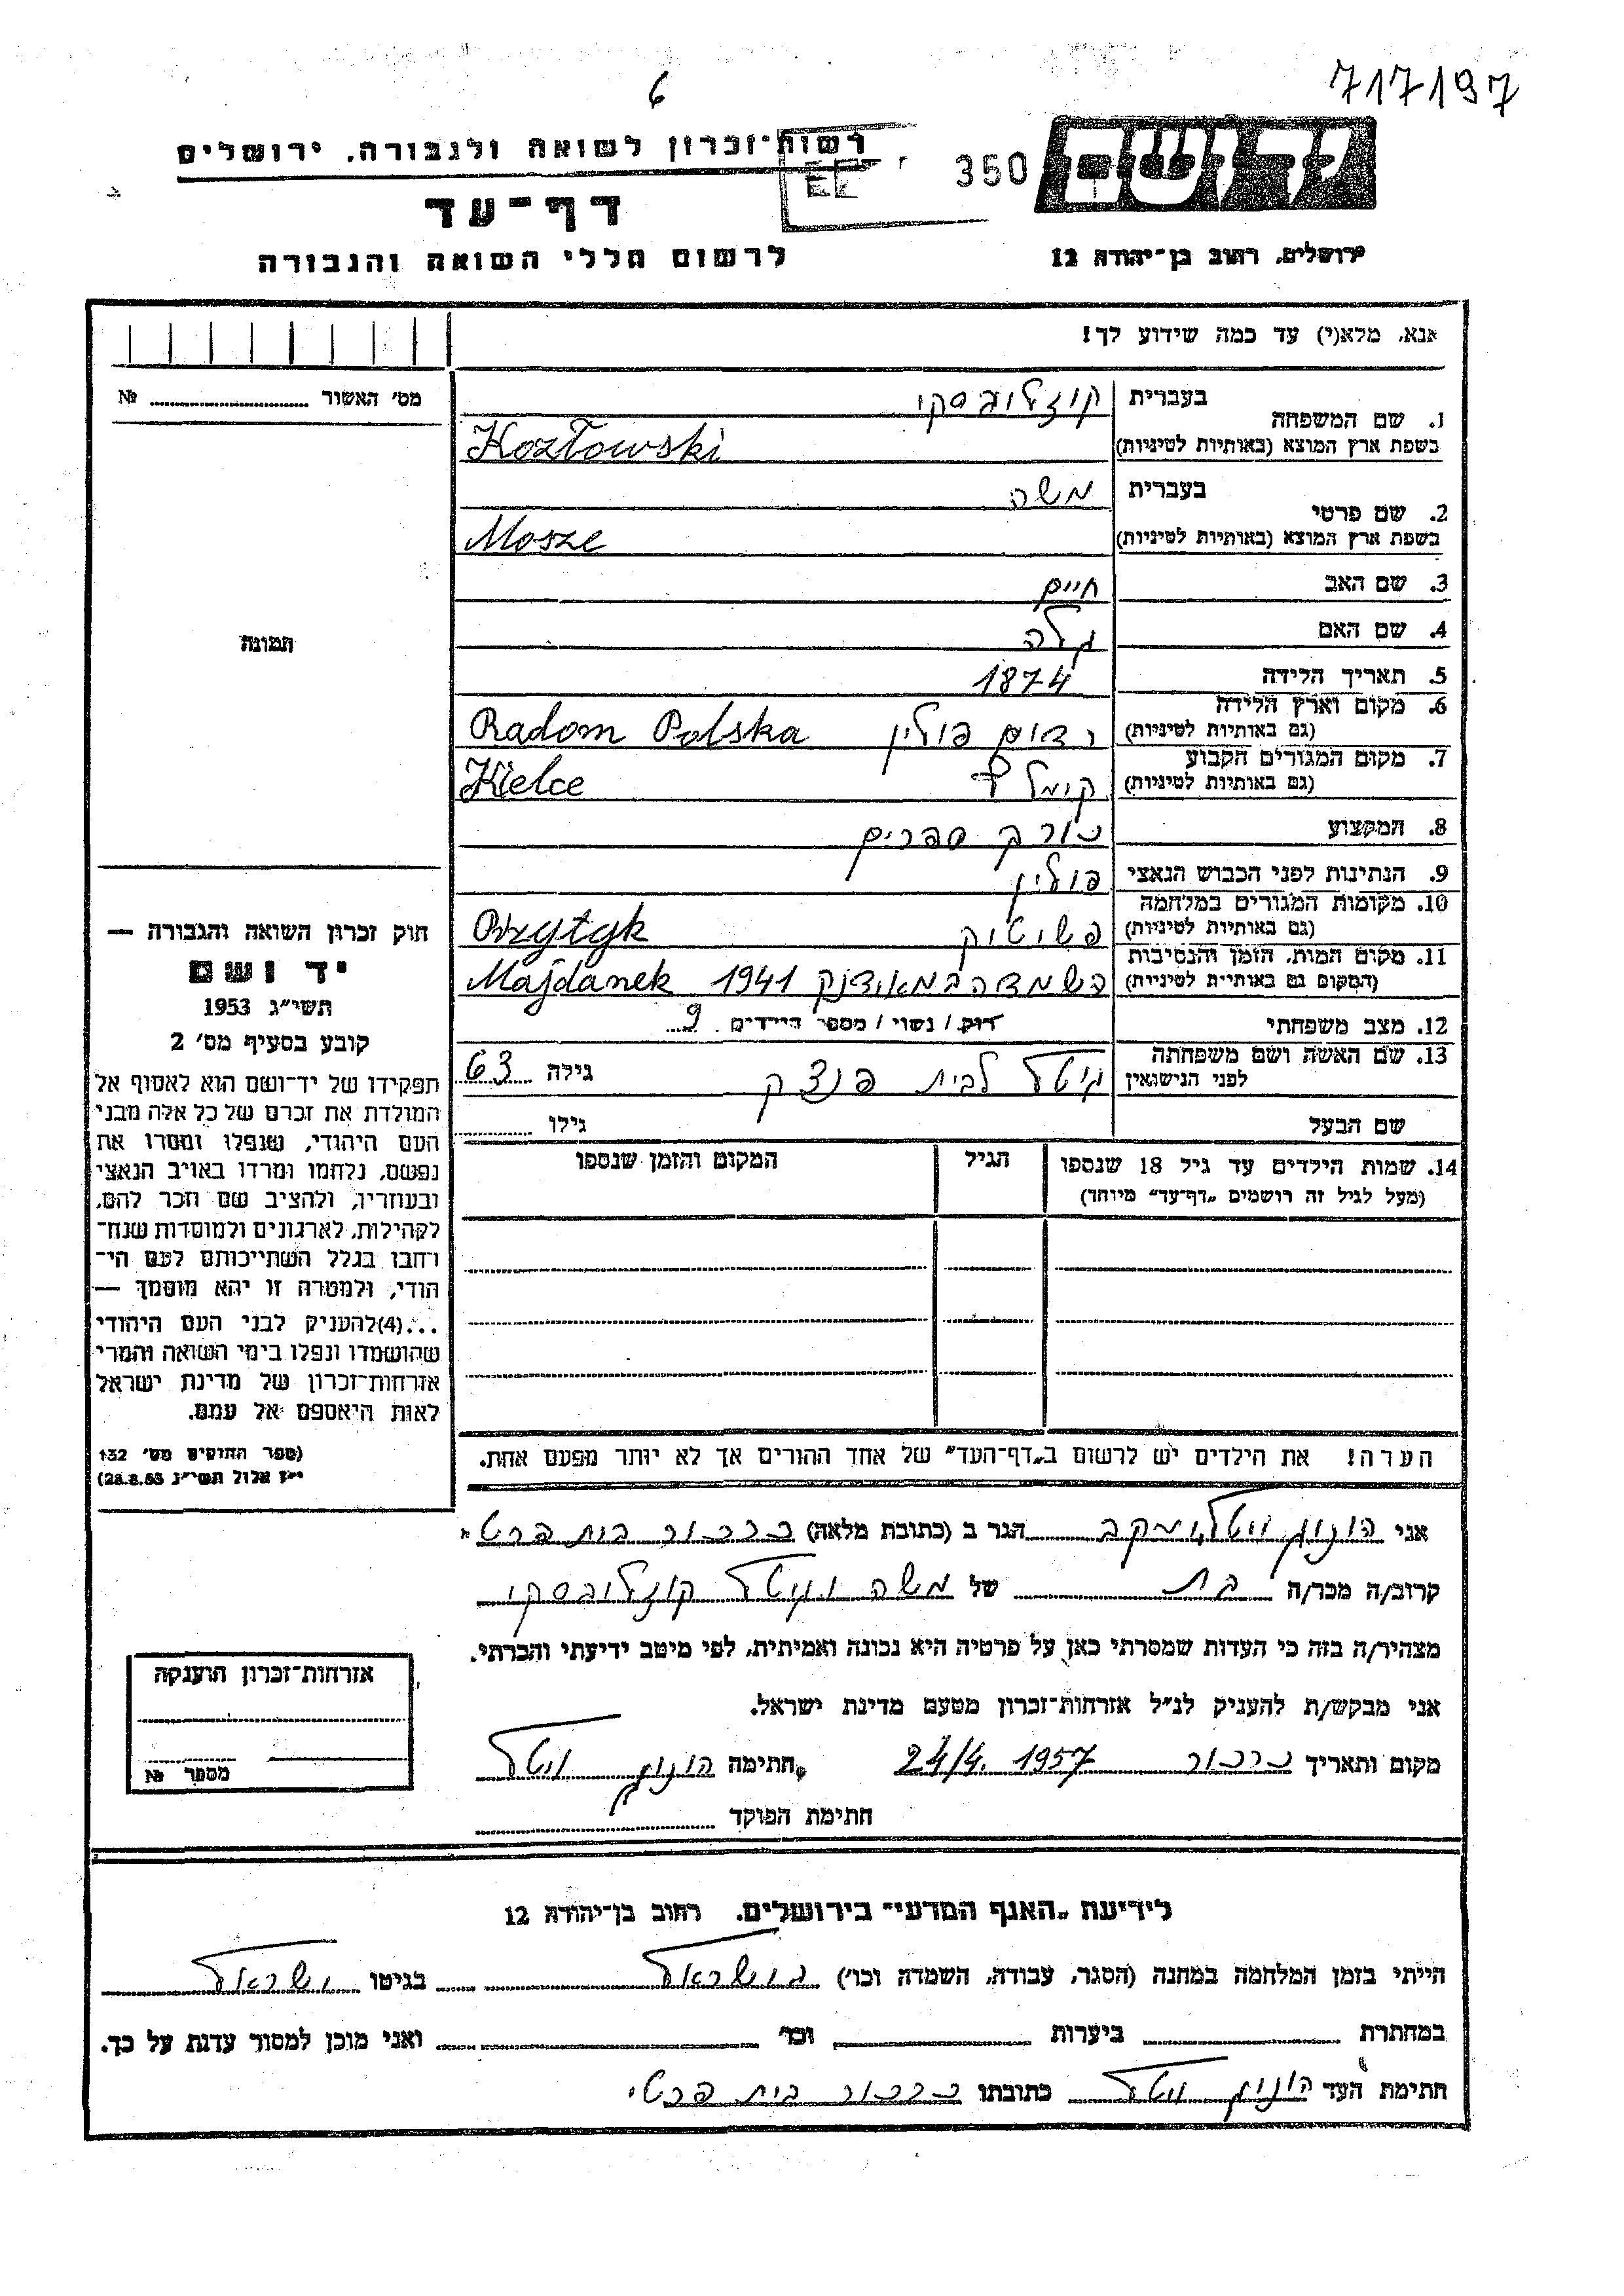 717197
6
רשות־זכרון לשואה ולגבורה, ירושלים
350
דף־עד
לרשום חללי השואה והגבורה
ירושלים, רחוב בן־יהודה 12
אנא, מלא(י) עד כמה שידוע לך!
מס' האשור № 
1. שם המשפחה בעברית קוזלובסקי
בשפת ארץ המוצא (באותיות לטיניות) Kozłowski
2. שם פרטי בעברית משה
בשפת ארץ המוצא (באותיות לטיניות) Mosze
3. שם האב חיים
4. שם האם גלה
5. תאריך הלידה 1874
6. מקום וארץ הלידה (גם באותיות לטיניות) רדום פולין Radom Polska
7. מקום המגורים הקבוע (גם באותיות לטיניות) Kielce
8. המקצוע כורך ספרים
9. הנתינות לפני הכבוש הנאצי פולין
10. מקומות המגורים במלחמה (גם באותיות לטיניות) פשיטיק Przytyk
11. מקום המות, הזמן והנסיבות (המקום גם באותיות לטיניות) השמדה במאידנק 1941 Majdanek
12. מצב משפחתי רווק / נשוי / מספר הילדים 9
13. שם האשה ושם משפחתה לפני הנישואין גיטל לבית פנצק גילה 63
שם הבעל גילו
14. שמות הילדים עד גיל 18 שנספו הגיל המקום והזמן שנספו
(מעל לגיל זה רושמים "דף־עד" מיוחד)
הערה! את הילדים יש לרשום ב"דף־העד" של אחד ההורים אך לא יותר מפעם אחת.
תמונה
חוק זכרון השואה והגבורה —
יד ושם
תשי"ג 1953
קובע בסעיף מס' 2
תפקידו של יד־ושם הוא לאסוף אל
המולדת את זכרם של כל אלה מבני
העם היהודי, שנפלו ומסרו את
נפשם, נלחמו ומרדו באויב הנאצי
ובעוזריו, ולהציב שם וזכר להם,
לקהילות, לארגונים ולמוסדות שנח־
רחבו בגלל השתייכותם לעם הי־
הודי, ולמטרה זו יהא מוסמך —
...(4)להעניק לבני העם היהודי
שהושמדו ונפלו בימי השואה והמרי
אזרחות־זכרון של מדינת ישראל
לאות היאספם אל עמם.
(ספר החוקים מס' 132
י"ז אלול תשי"ג 28.8.53)
אני הגר ב (כתובת מלאה) כרכור בית
קרוב/ה מכר/ה בת של משה וגיטל קוזלובסקי
מצהיר/ה בזה כי העדות שמסרתי כאן על פרטיה היא נכונה ואמיתית, לפי מיטב ידיעתי והכרתי.
אני מבקש/ת להעניק לנ"ל אזרחות־זכרון מטעם מדינת ישראל.
מקום ותאריך כרכור 24/4. 1957 חתימה
חתימת הפוקד
אזרחות־זכרון הוענקה
מספר №
לידיעת "האגף המדעי" בירושלים, רחוב בן־יהודה 12
הייתי בזמן המלחמה במחנה (הסגר, עבודה, השמדה וכו') בישראל בגיטו ישראל
במחתרת ביערות וכו' ואני מוכן למסור עדות על כך.
חתימת העד כתובתו כרכור בית